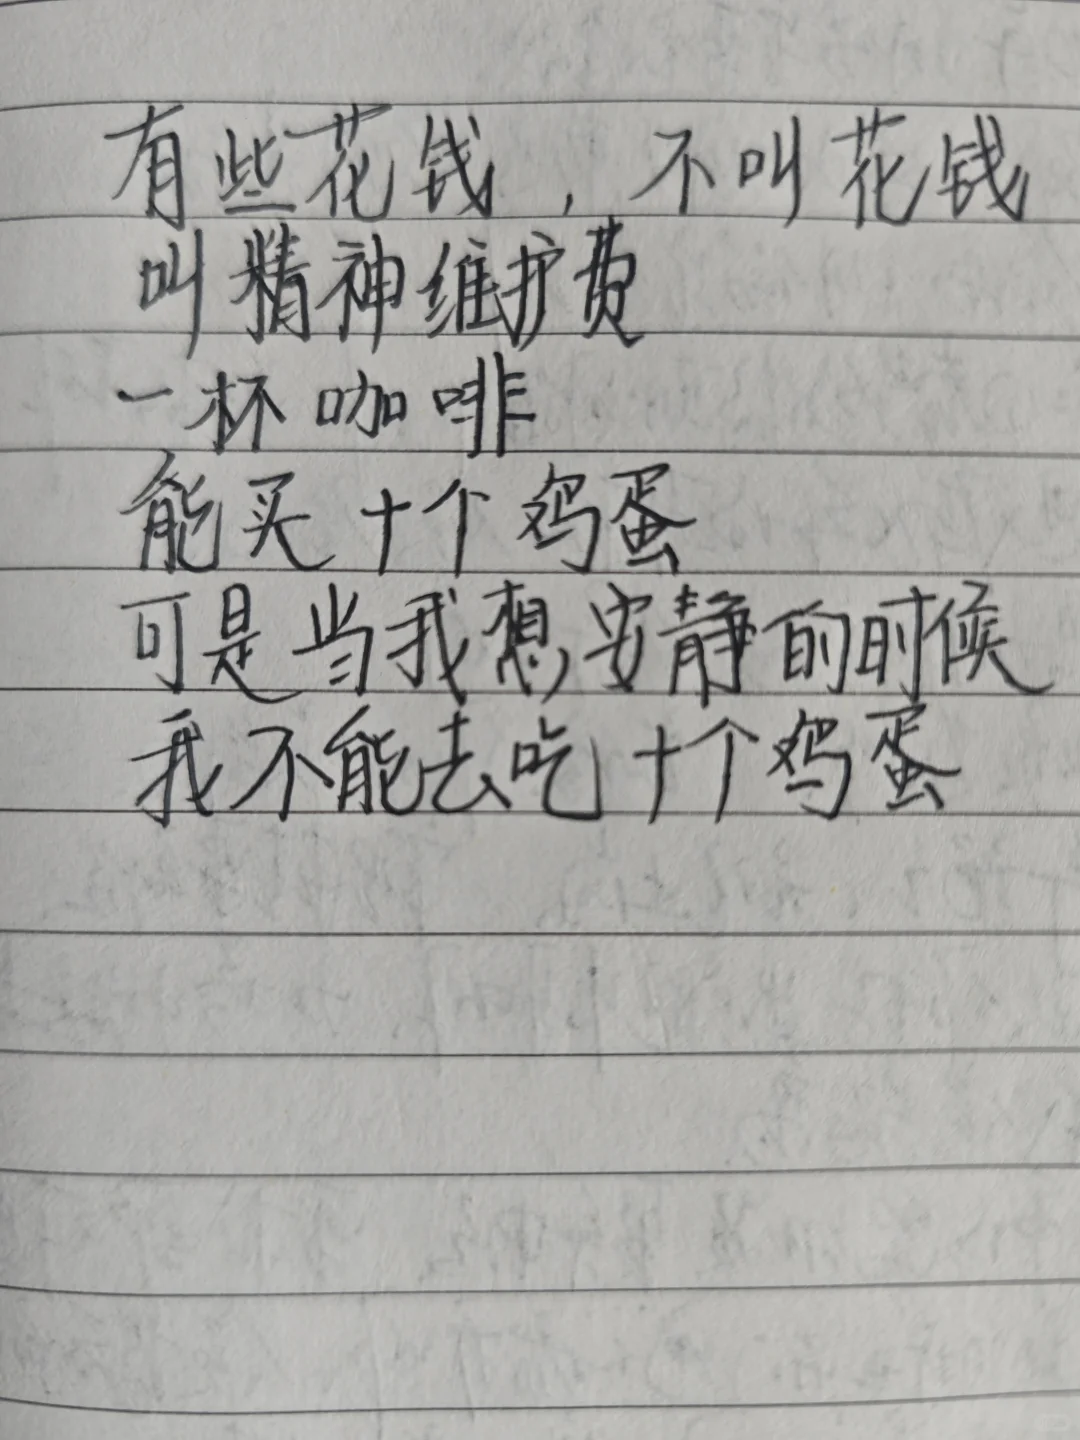 有些花钱，不叫花钱
叫精神维护费
一杯咖啡
能买十个鸡蛋
可是当我想安静的时候
我不能去吃十个鸡蛋